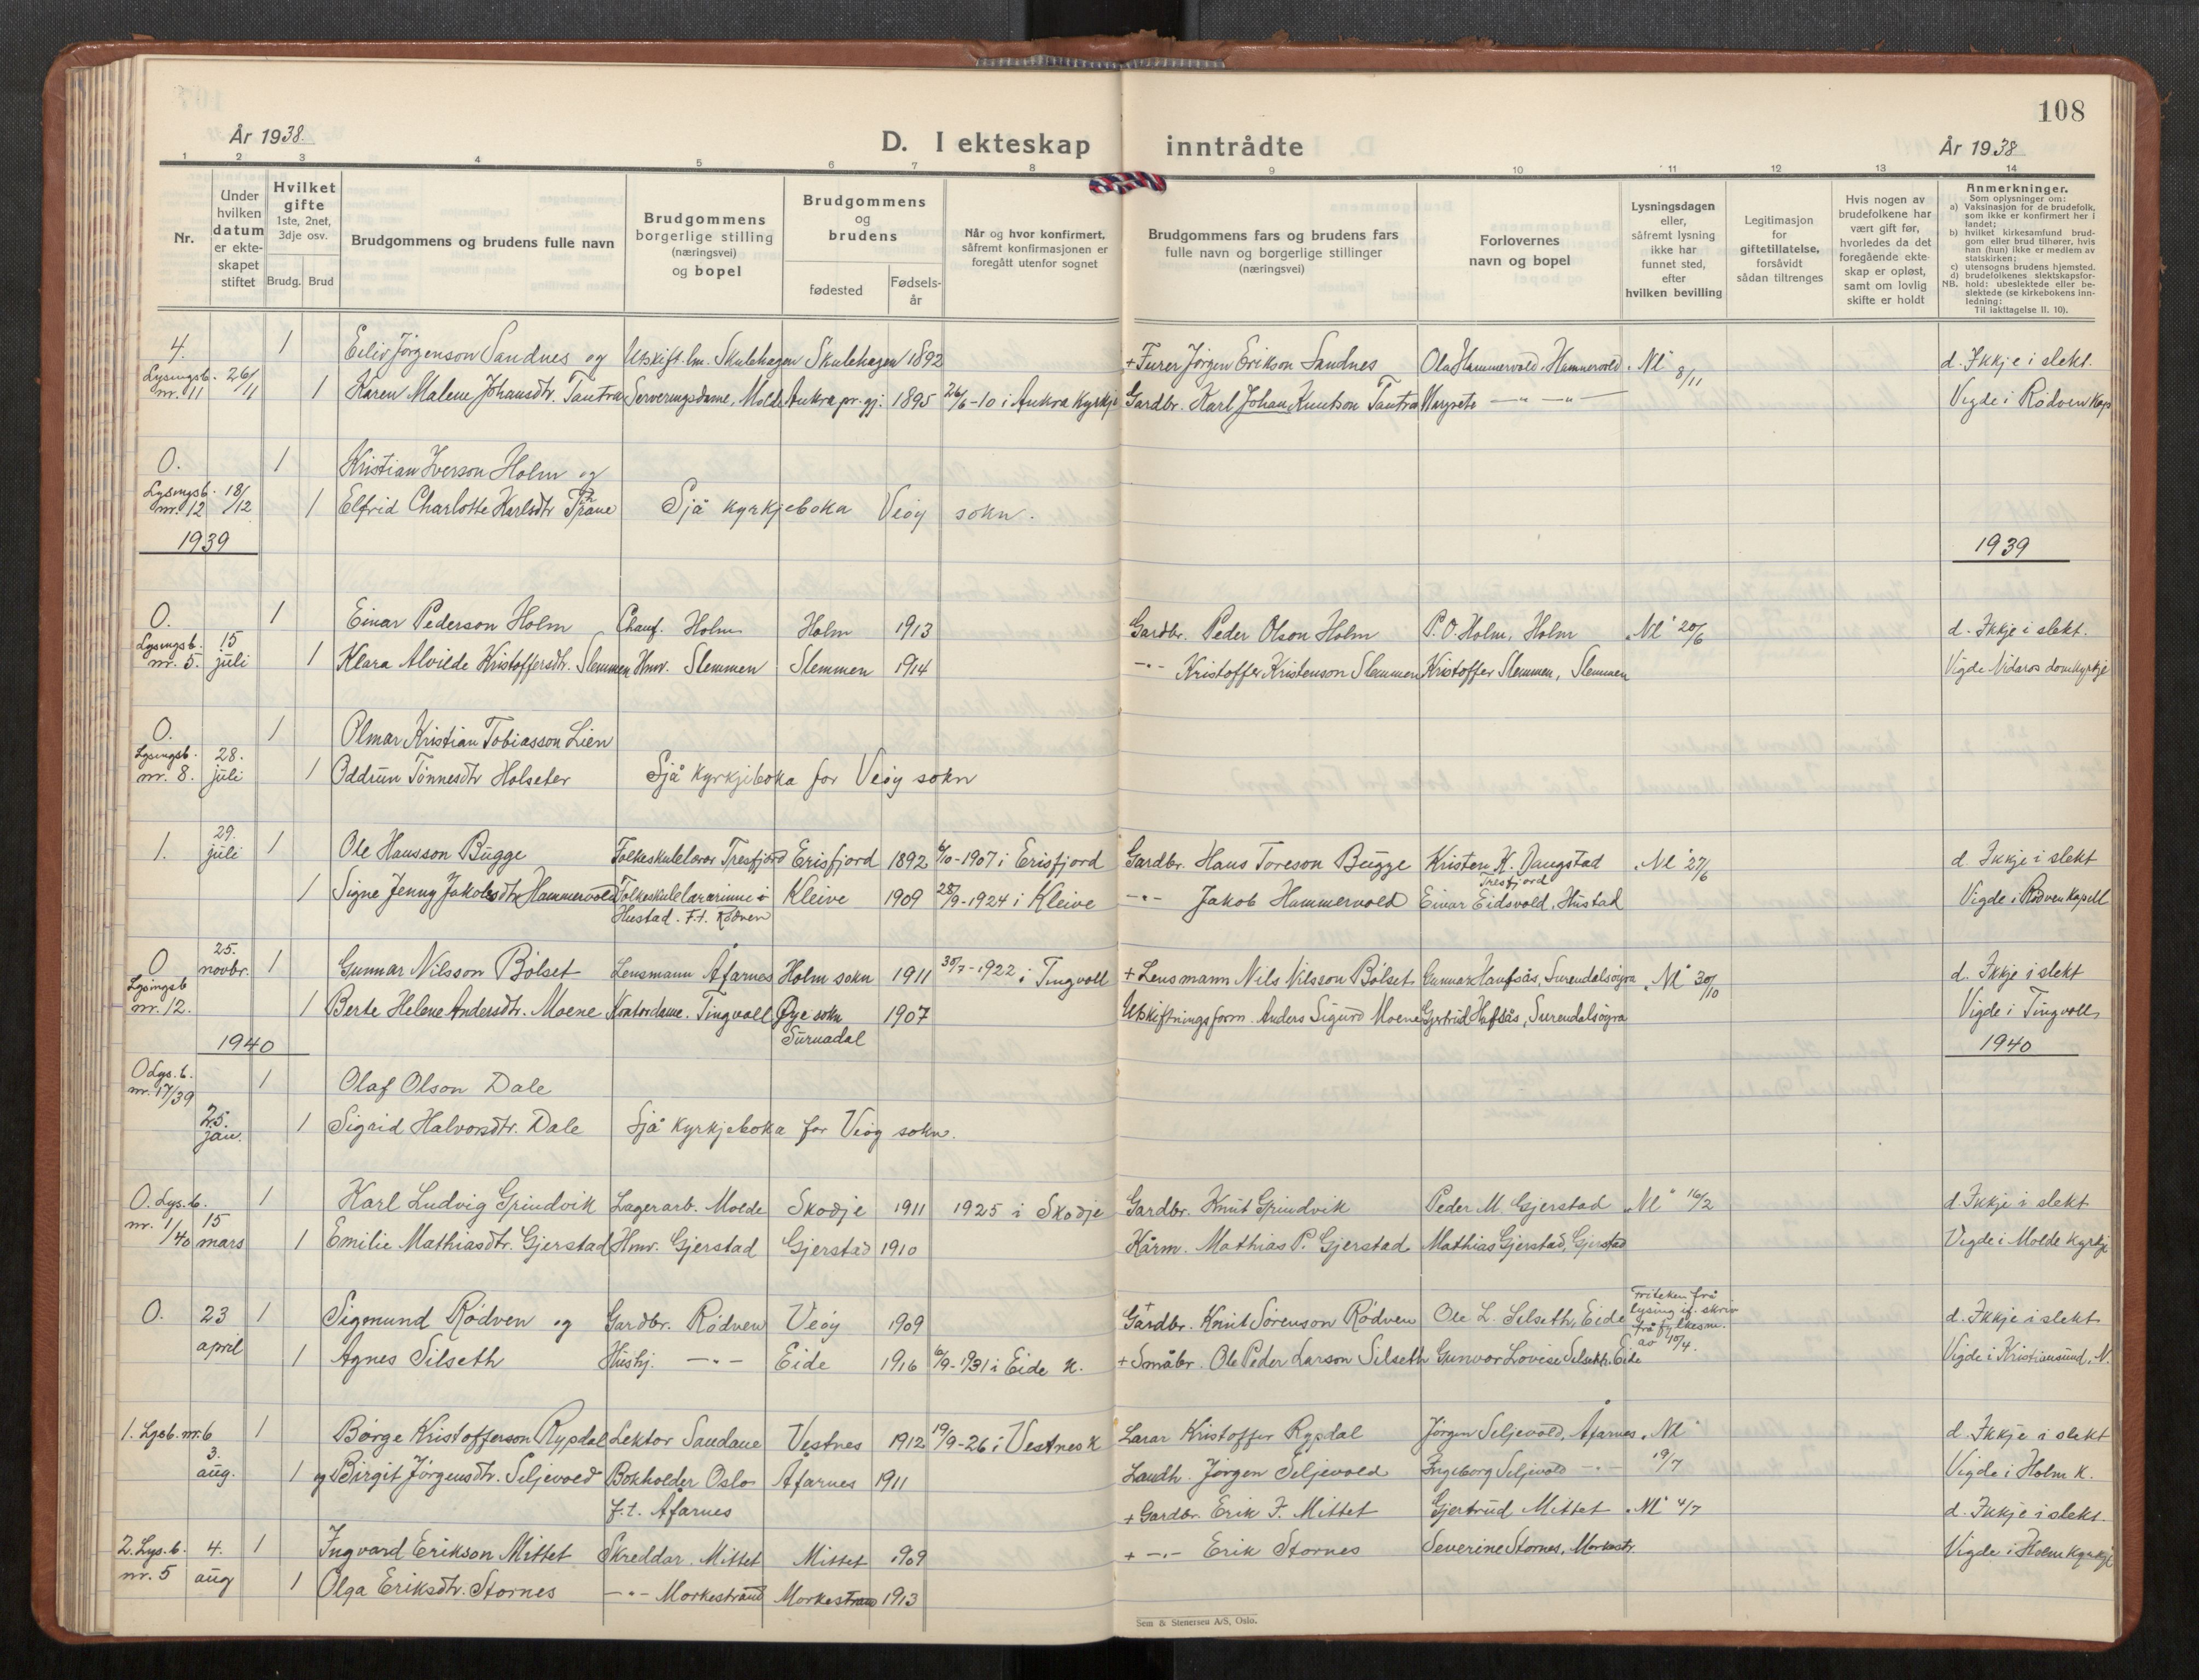 108
År 1938.
D. I ekteskap inntrådte
År 1938
1 2 3 4 5 6 7 8 9 10 11 12 13 14
Nr.
Under hvilken datum er ekteskapet stiftet
Hvilket gifte
1ste, 2net, 3dje osv.
Brudg. Brud
Brudgommens og brudens fulle navn
Brudgommens borgerlige stilling (næringsvei) og bopel
Brudgommens og brudens
fødested
Fødselsår
Når og hvor konfirmert, såfremt konfirmasjonen er foregått utenfor sognet
Brudgommens fars og brudens fars fulle navn og borgerlige stillinger (næringsvei)
Forlovernes navn og bopel
Lysningsdagen eller, såfremt lysning ikke har funnet sted, efter hvilken bevilling
Legitimasjon for giftetillatelse, forsåvidt sådan tiltrenges
Hvis nogen av brudefolkene har vært gift før, hvorledes da det foregående ekteskap er opløst, samt om lovlig skifte er holdt
Anmerkninger.
Som oplysninger om:
a) Vaksinasjon for de brudefolk, som ikke er konfirmert her i landet;
b) hvilket kirkesamfund brudgom eller brud tilhører, hvis han (hun) ikke er medlem av statskirken;
c) utensogns brudens hjemsted.
d) brudefolkenes slektskapsforhold: ubeslektede eller beslektede (se kirkebokens innledning:
NB.
Til iakttagelse II. 10).
4. 1 Eiliv Jørgenson Sandnes og Utskift.fm. Skulehagen Skulehagen 1892 + Furer Jørgen Erikson Sandnes Ola Hammervold, Hammervold. Nl. 8/11 d. Ikkje i slekt.
Lysingsb. nr. 11 26/11 1 Karen Malene Johansdtr. Tautra Serveringsdame, Molde Aukra pr.gj. 1895 26/6-10 i Aukra Kyrkje Gardbr. Karl Johan Knutson Tautra Margrete —"— —"— Vigde i Rødven Kap
0. 1 Kristian Iverson Holm og
Lysingsb. nr. 12 18/12 1 Elfrid Charlotte Karlsdtr Thrane Sjå kyrkjeboka Veøy sokn.
1939 1939
0. 1 Einar Pederson Holm Chauf. Holm Holm 1913 Gardbr. Peder Olson Holm P. O. Holm, Holm Nl. 20/6 d. Ikkje i slekt.
Lysingsb. nr. 5. 15 juli 1 Klara Alvilde Kristoffersdtr. Slemmen Hmv. Slemmen Slemmen 1914 —"— Kristoffer Kristenson Slemmen Kristoffer Slemmen, Slemmen Vigde Nidaros domkyrkje
0. 1 Olmar Kristian Tobiasson Lien
Lysingsb. nr. 8. 28. juli 1 Oddrun Tønnesdtr Holseter Sjå kyrkjeboka for Veøy sokn
1. 29. juli 1 Ole Hansson Bugge Folkeskulelærar Tresfjord Erisfjord 1892 6/10-1907 i Erisfjord Gardbr. Hans Toreson Bugge Kristen K. Daugstad Tresfjord Nl. 27/6 d. Ikkje i slekt
1 Signe Jenny Jakobsdtr Hammervold Folkeskulelærarinne i Hustad. F.t. Rødven Kleive 1909 28/9-1924 i Kleive —"— Jakob Hammervold Einar Eidsvold, Hustad Vigde i Rødven Kapell
0 25. novbr. 1 Gunnar Nilsson Bølset Lensmann Åfarnes Holm sokn 1911 30/7-1922 i Tingvoll + Lensmann Nils Nilsson Bølset Gunnar Haufsås, Surendalsøyra Nl. 30/10 d. Ikkje i slekt
Lysingsb nr. 12. 1 Berte Helene Andersdtr. Moene Kontordame. Tingvoll Øye sokn Surnadal 1907 Utskiftningsform. Anders Sigurd Moene Gjertrid Hafsås, Surendalsøyra Vigde i Tingvoll
1940 1940
0 Lys.b. nr. 17/39 1 Olaf Olson Dale
25. jan. 1 Sigrid Halvorsdtr. Dale Sjå kyrkjeboka for Veøy sokn.
0. Lys.b. nr. 1/40 1 Karl Ludvig Grindvik Lagerarb. Molde Skodje 1911 1925 i Skodje Gardbr. Knut Grindvik Peder M. Gjerstad Nl. 16/2 d. Ikkje i slekt
15 mars 1 Emilie Mathiasdtr. Gjerstad Hmv. Gjerstad Gjerstad 1910 Kårm. Mathias P. Gjerstad Mathias Gjerstad, Gjerstad Vigde i Molde Kyrkje
0. 23 april 1 Sigmund Rødven og Gardbr. Rødven Veøy 1909 + Gardbr. Knut Sørenson Rødven Ole L. Silseth, Eide Friteken frå lysing if. skriv frå fylkesm. av 10/4. d. Ikkje i slekt
1 Agnes Silseth Hushj. —"— Eide 1916 6/9-1931 i Eide K. + Småbr. Ole Peder Larson Silseth Gunvor Lovise Silseth, Eide Vigde i Kristiansund. N.
1. Lysb. nr. 6 1 Børge Kristofferson Rypdal Lektor Sandane Vestnes 1912 19/9-26 i Vestnes K Lærar Kristoffer Rypdal Jørgen Seljevold, Åfarnes. Nl. 19/7 d. Ikkje i slekt
3. aug. 1 og Birgit Jørgensdtr. Seljevold Bokholder Oslo f.t. Åfarnes Åfarnes 1911 Landh. Jørgen Seljevold Ingeborg Seljevold —"— Vigde i Holm K.
2. Lys.b. nr. 5 4. aug 1 Ingvard Erikson Mittet Skreddar. Mittet Mittet 1909 + Gardbr. Erik J. Mittet Gjertrud Mittet Nl. 4/7 d. Ikkje i slekt.
1 Olga Eriksdtr. Stornes —"— Morkestrand Morkestrand 1913 + —"— Erik Stornes Severine Stornes, Morkestr. Vigde i Holm Kyrkje
Sem & Stenersen A/S, Oslo.